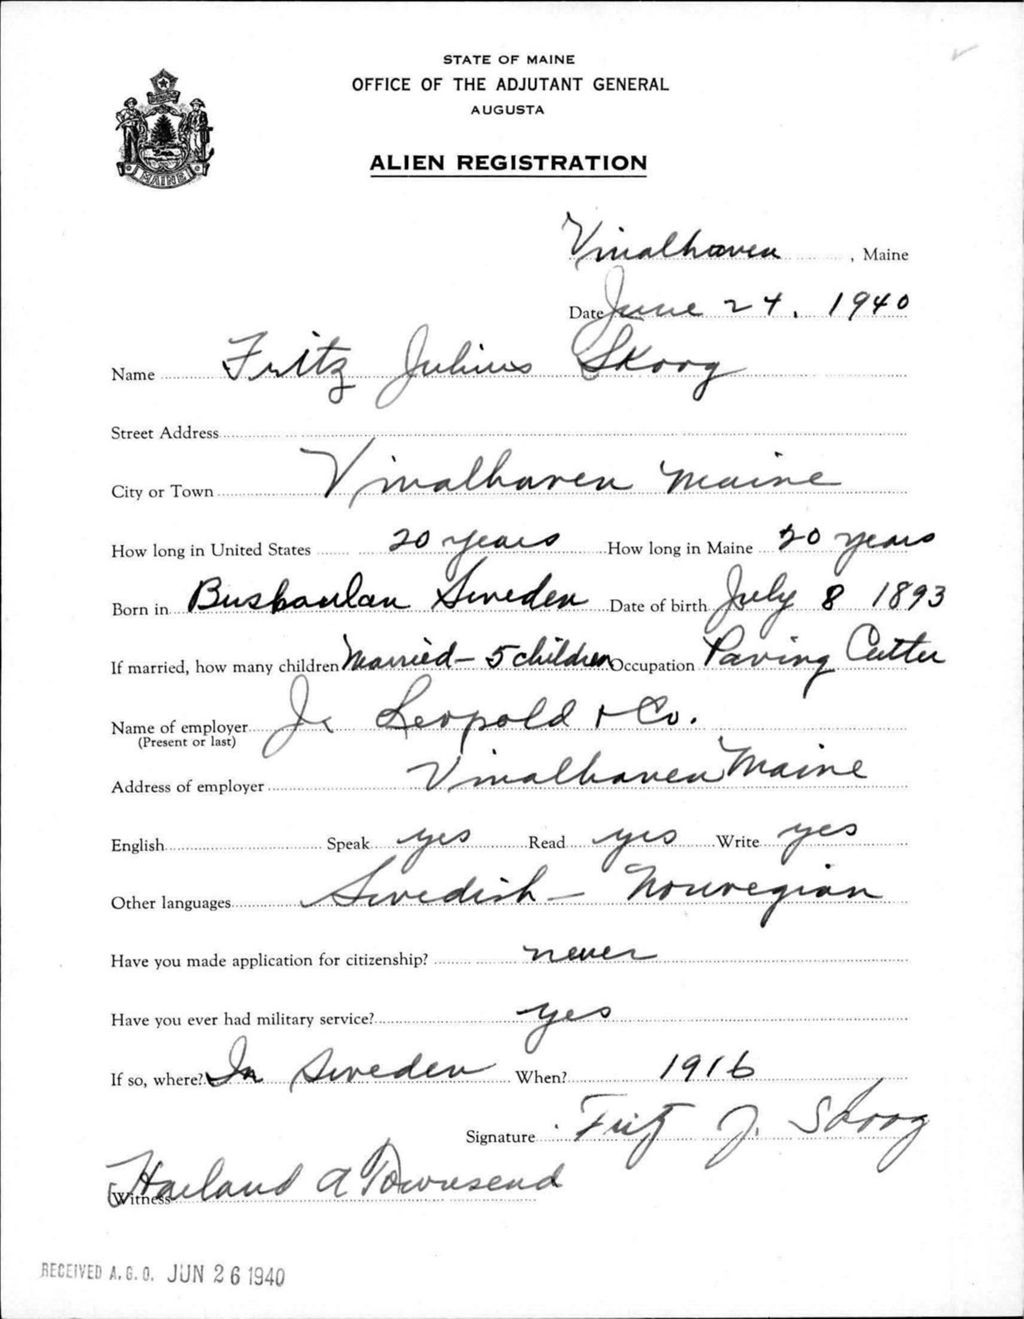 STATE OF MAINE
OFFICE OF THE ADJUTANT GENERAL
AUGUSTA
MAINE
ALIEN REGISTRATION
Vinalhaven, Maine
Date June 24, 1940
Name Fritz Julius Skoog
Street Address
City or Town Vinalhaven Maine
How long in United States 20 years How long in Maine 20 years
Born in Sweden Date of birth July 8 1893
If married, how many children Married - 5 children Occupation Paving Cutter
Name of employer Leopold & Co.
(Present or last)
Address of employer Vinalhaven Maine
English Speak yes Read yes Write yes
Other languages Swedish - Norwegian
Have you made application for citizenship? never
Have you ever had military service? yes
If so, where? In Sweden When? 1916
Signature Fritz J. Skoog
Witness Harland A Townsend
RECEIVED A.G.O. JUN 26 1940